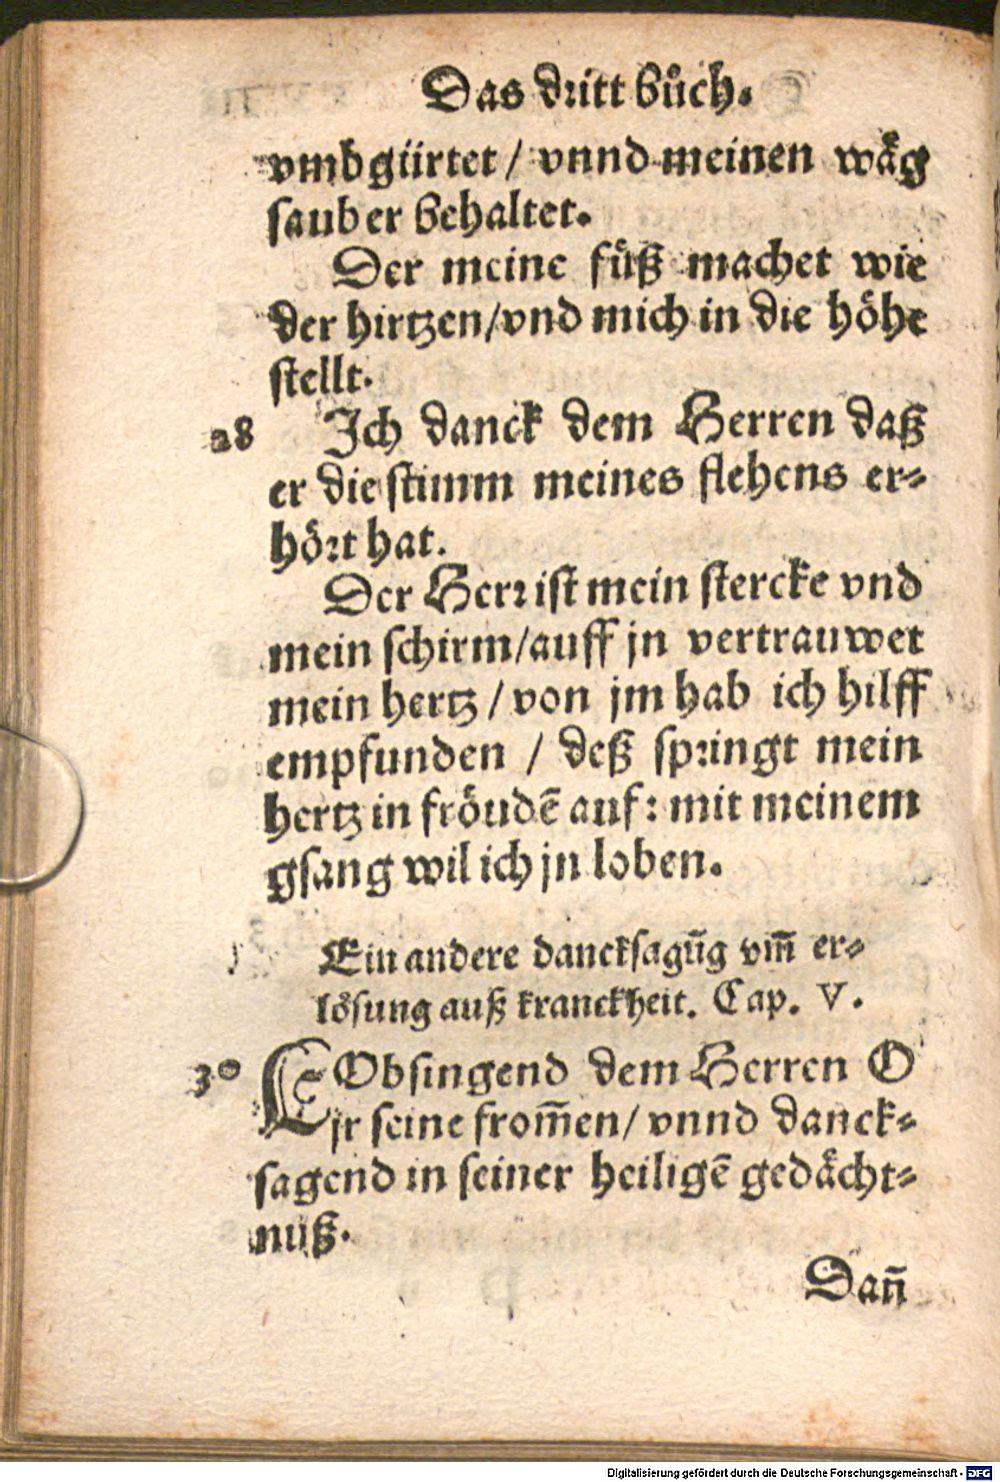 Das dritt bůch.
vmbgürtet / vnnd meinen wäg
sauber behaltet.
Der meine fůß machet wie
der hirtzen/vnd mich in die höhe
stellt.
28 Ich danck dem Herren daß
er die stimm meines flehens er-
hört hat.
Der Herr ist mein stercke vnd
mein schirm/auff jn vertrauwet
mein hertz / von jm hab ich hilff
empfunden / deß springt mein
hertz in fröudē auf: mit meinem
gsang wil ich jn loben.
Ein andere dancksagūg vm̄ er-
lösung auß kranckheit. Cap. V.
30 LObsingend dem Herren O
jr seine from̄en/ vnnd danck-
sagend in seiner heiligē gedächt-
nuß.
Dan̄
Digitalisierung gefördert durch die Deutsche Forschungsgemeinschaft - DFG